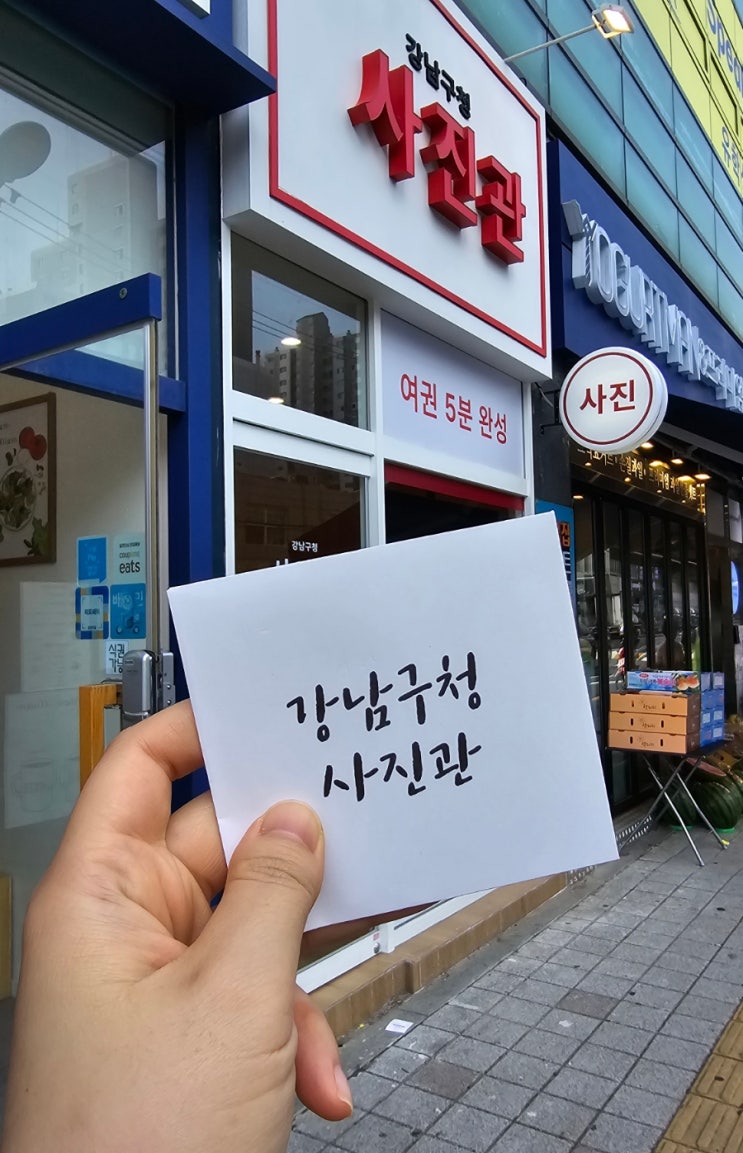 강남구청
사진관
여권 5분 완성
사진
YOGURTMEN
강남구청
coupang
eats
식권
강남구청
사진관